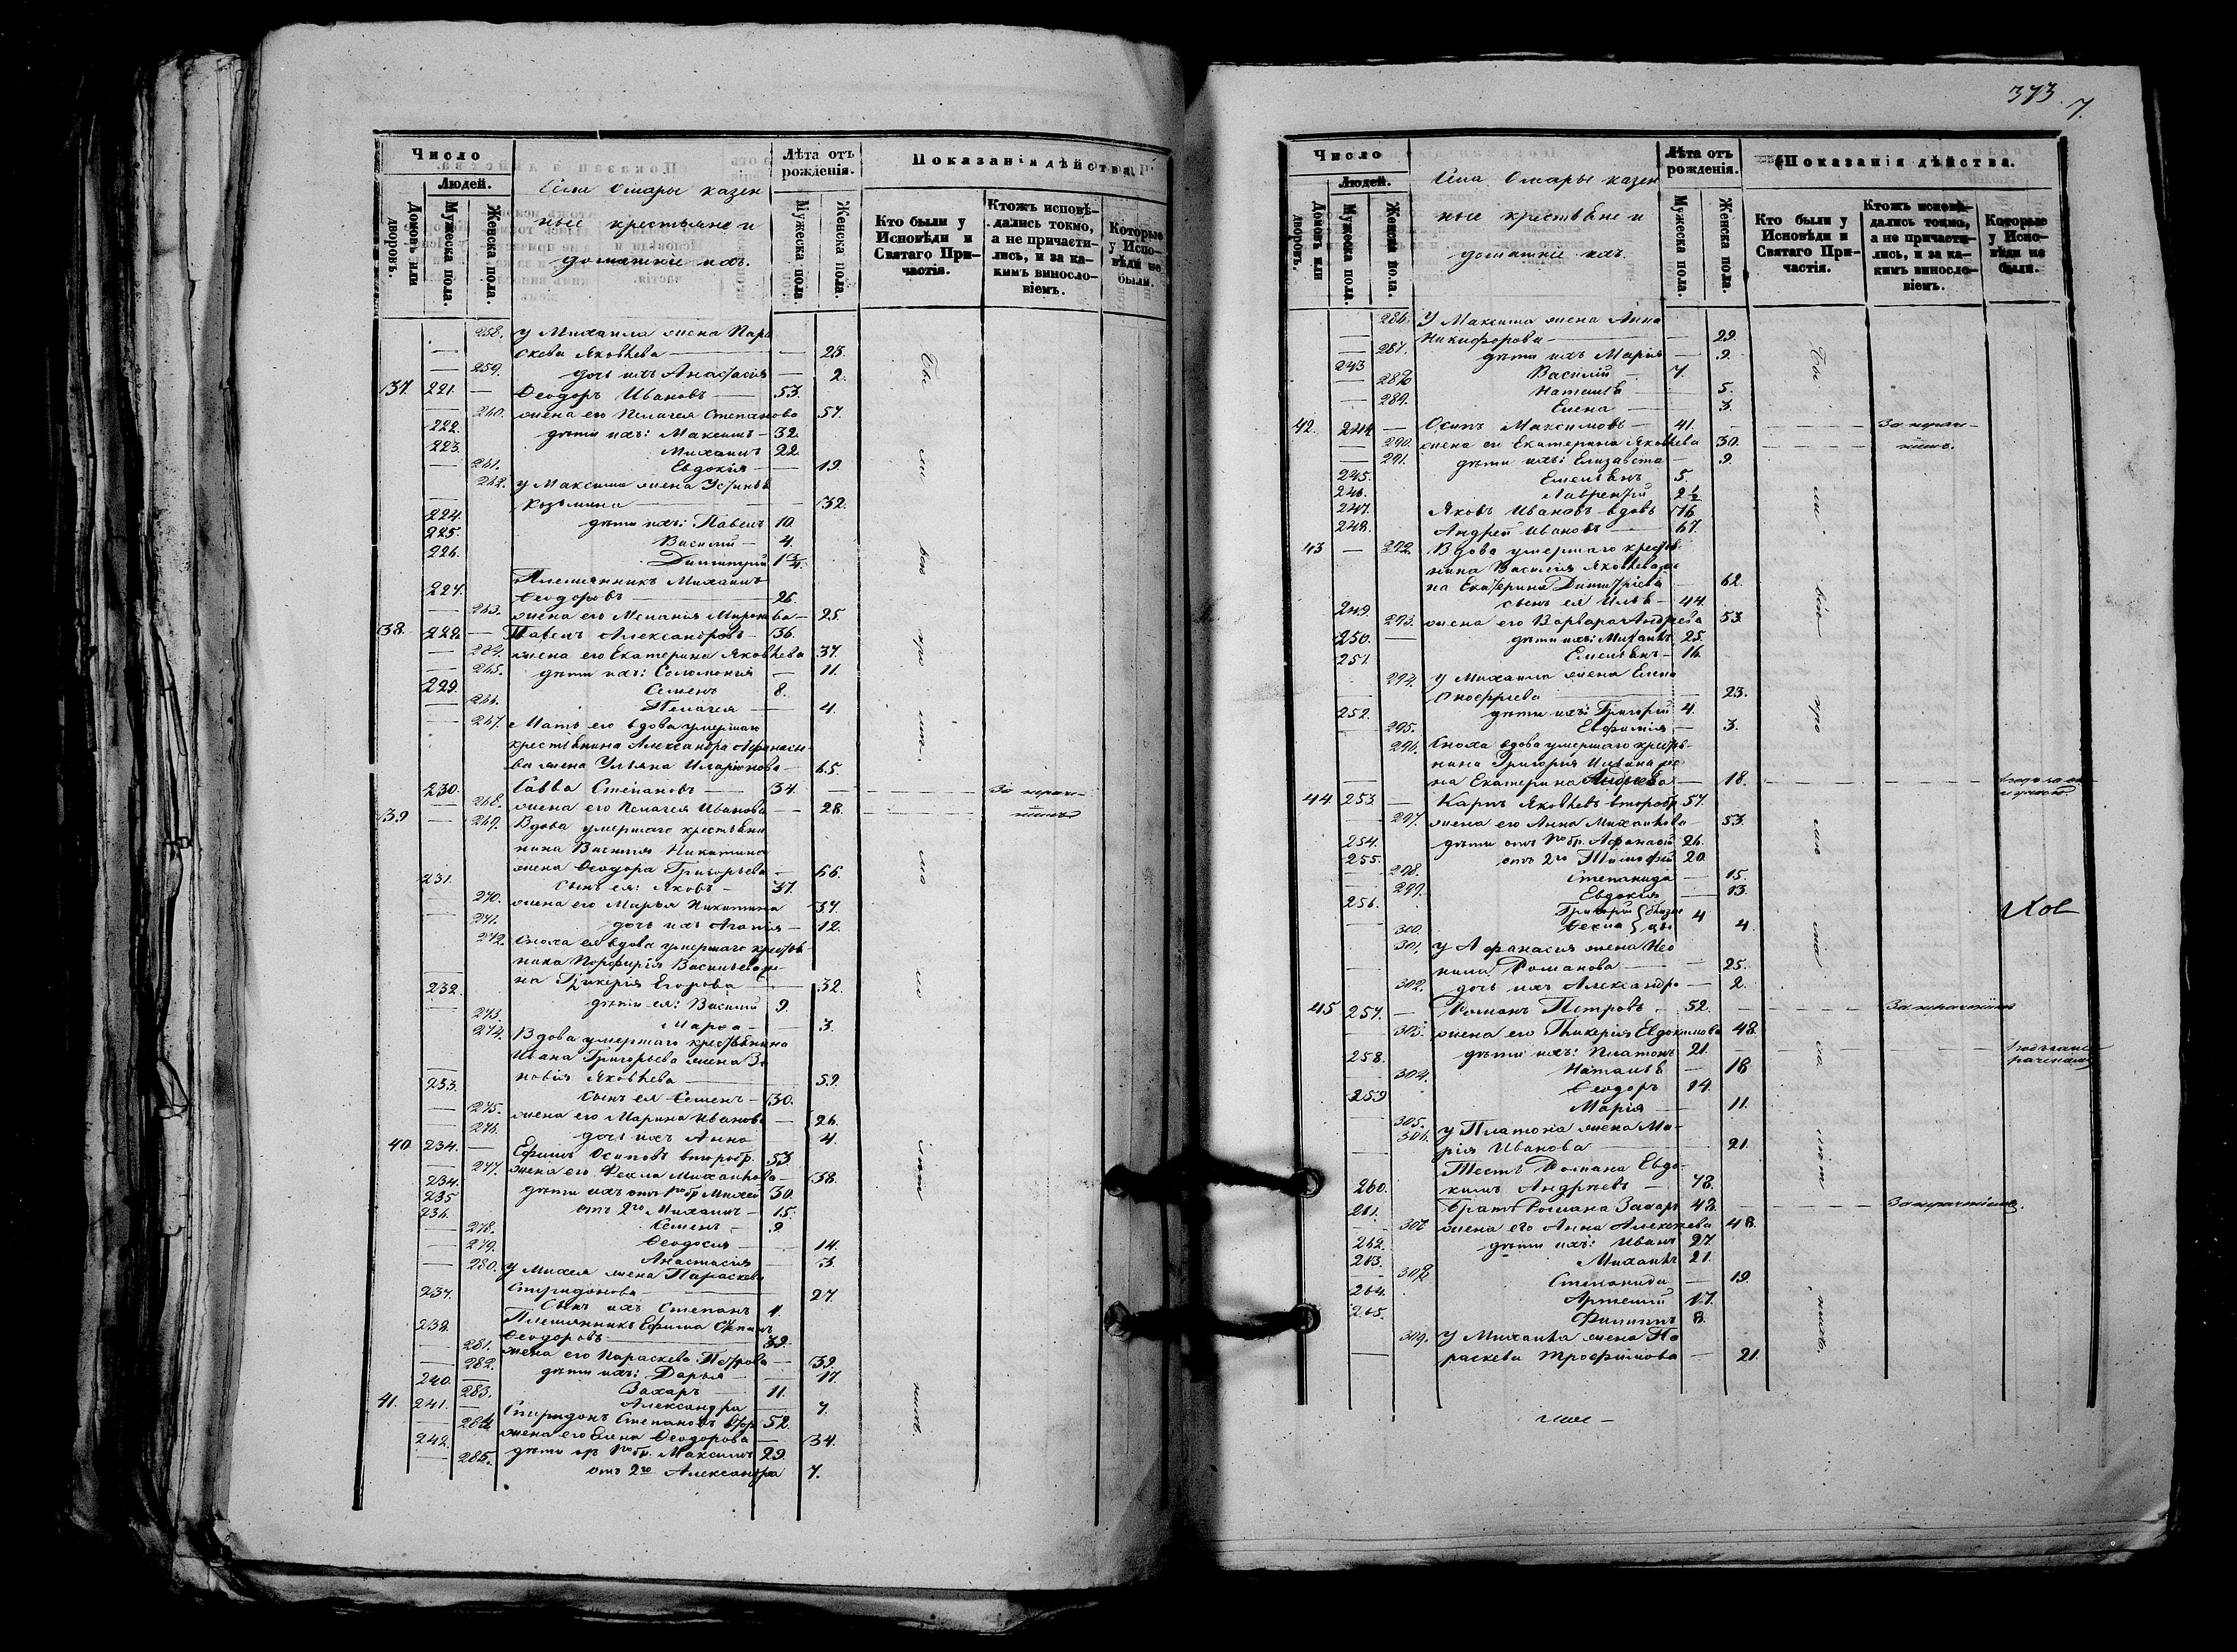 Число
Людей.
Домовъ или дворовъ.
Мужеска пола.
Женска пола.
Села Омары казен
ные крестьяне и
домашніе ихъ.
Лѣта отъ рожденія.
Мужеска пола.
Женска пола.
Показанія дѣйства.
Кто были у Исповѣди и Святаго Причастія.
Ктожъ исповѣдались токмо, а не причастились, и за какимъ винословіемъ.
Которые у Исповѣди не были.
258. у Михаила жена Пара
скева Яковлева — 23.
259. дочь ихъ Анастасія — 2.
37. 221 — Ѳеодоръ Ивановъ — 53.
260. жена его Пелагея Степанова 57.
222. дѣти ихъ: Максимъ — 32.
223. Михаилъ 22.
261. Евдокія — 19.
262. у Максима жена Устинья
Козьмина — 32.
224. дѣти ихъ: Павелъ 10.
225. Василій — 4.
226. Димитрій 1 3/4
Племянникъ Михаилъ
227. Ѳеодоровъ — 26.
263. жена его Меланія Миронова — 25.
38. 228. — Павелъ Александровъ — 36.
264. жена его Екатерина Яковлева 37.
265. дѣти ихъ: Соломонія — 11.
229. Семенъ 8.
266. Пелагея — 4.
267. Мать его вдова умершаго
крестьянина Александра Афанасье
ва жена Ульяна Иларіонова — 65.
230. Савва Степановъ — 34. За нерач-
268. жена его Пелагея Иванова — 28. ніемъ
39 269. Вдова умершаго крестьяни
нина Василія Никитина
жена Ѳеодора Григорьева — 66.
231. сынъ ея: Яковъ — 37.
270. жена его Марья Никитина 37.
271. дочь ихъ Агафья — 12.
272. Сноха ея вдова умершаго крестья
нина Порфирія Васильева же-
232. на Гликерія Егорова — 32.
дѣти ея: Василій 9.
273. Марѳа — 3.
274. Вдова умершаго крестьянина
Ивана Григорьева жена Зи
новія Яковлева — 59.
233. сынъ ея Семенъ — 30.
275. жена его Марина Иванова — 26.
276. дочь ихъ Анна 4.
40 234. — Ефимъ Осиповъ второбр. 53.
277. жена его Ѳекла Михайлова — 38.
234. дѣти ихъ отъ 1го бр. Михей 30.
235 отъ 2го Михаилъ — 15.
236. Семенъ — 9.
278. Ѳеодосія — 14.
279. Анастасія — 3
280. у Михея жена Параскева
Спиридонова — 27.
237. Сынъ ихъ Степанъ 1.
238. Племянникъ Ефима Степанъ
Ѳеодоровъ — 39.
281. жена его Параскева Петрова — 39.
282. дѣти ихъ: Дарья — 17.
240. Захаръ — 11.
283. Александра — 7.
41. 241. Спиридонъ Степановъ втор 52.
284 жена его Елена Ѳеодорова — 34.
242. дѣти отъ 1го бр. Максимъ 29.
285. отъ 2го Александра 7.
Бы ли
373. 7.
Число
Людей.
Домовъ или дворовъ.
Мужеска пола.
Женска пола.
Села Омары казен
ные крестьяне и
домашніе ихъ.
Лѣта отъ рожденія.
Мужеска пола.
Женска пола.
Показанія дѣйства.
Кто были у Исповѣди и Святаго Причастія.
Ктожъ исповѣдались токмо, а не причастились, и за какимъ винословіемъ.
Которые у Исповѣди не были.
286. У Максима жена Анна
Никифорова — 29.
287. дѣти ихъ Марія — 9.
243 Василій — 7.
288 Наталья — 5.
289. Елена — 3.
42. 244 — Осипъ Максимовъ — 41. За нерач-
290. жена его Екатерина Яковлева 30. ніемъ.
291. дѣти ихъ: Елизавета — 9.
245. Емельянъ 5.
246. Лаврентій 2 1/2
247. Яковъ Ивановъ вдовъ 76
248. Андрей Ивановъ — 67.
43 — 292. Вдова умершаго крестья-
нина Василія Яковлева же
на Екатерина Димитріева — 62.
249. сынъ ея Илья — 44.
293. жена его Варвара Андреева 53
250. дѣти ихъ: Михаилъ 25.
251. Емельянъ — 16.
294. у Михаила жена Елена
Онофріева — 23.
252. дѣти ихъ: Григорій 4.
295. Евфимія — 3.
296. Сноха вдова умершаго крестья-
нина Григорія Ильина же
на Екатерина — 18.
44 253. — Карпъ Яковлевъ второбр 57.
297. жена его Анна Михайлова — 53.
254. дѣти отъ 1го бр. Афанасій 26.
255. отъ 2го Тимофей 20.
298. Степанида — 15.
299. Евдокія — 13.
256. Григорій близне 4
300. Ѳекла цы 4.
301. у Афанасія жена Нео
нила Романова — 25.
302. дочь ихъ Александра — 2.
45 257. — Романъ Петровъ — 52. За нерачніемъ
303. жена его Гликерія Евдокимова 48.
258. дѣти ихъ: Платонъ 21.
304. Наталья — 18
259 Ѳеодоръ 14.
305. Марія — 11.
306. у Платона жена Ма-
рія Иванова — 21.
Тесть Романа Евдо-
260. кимъ Андреевъ — 78.
261. Братъ Романа Захаръ 48. За нерачніемъ.
307 жена его Анна Алексеева 48.
262. дѣти ихъ: Иванъ 27.
263. Михаилъ 21.
308 Степанида — 19.
264. Артемій 17.
265. Филиппъ 8.
309. у Михаила жена Па
раскева Трофимова — 21.
Бы ли